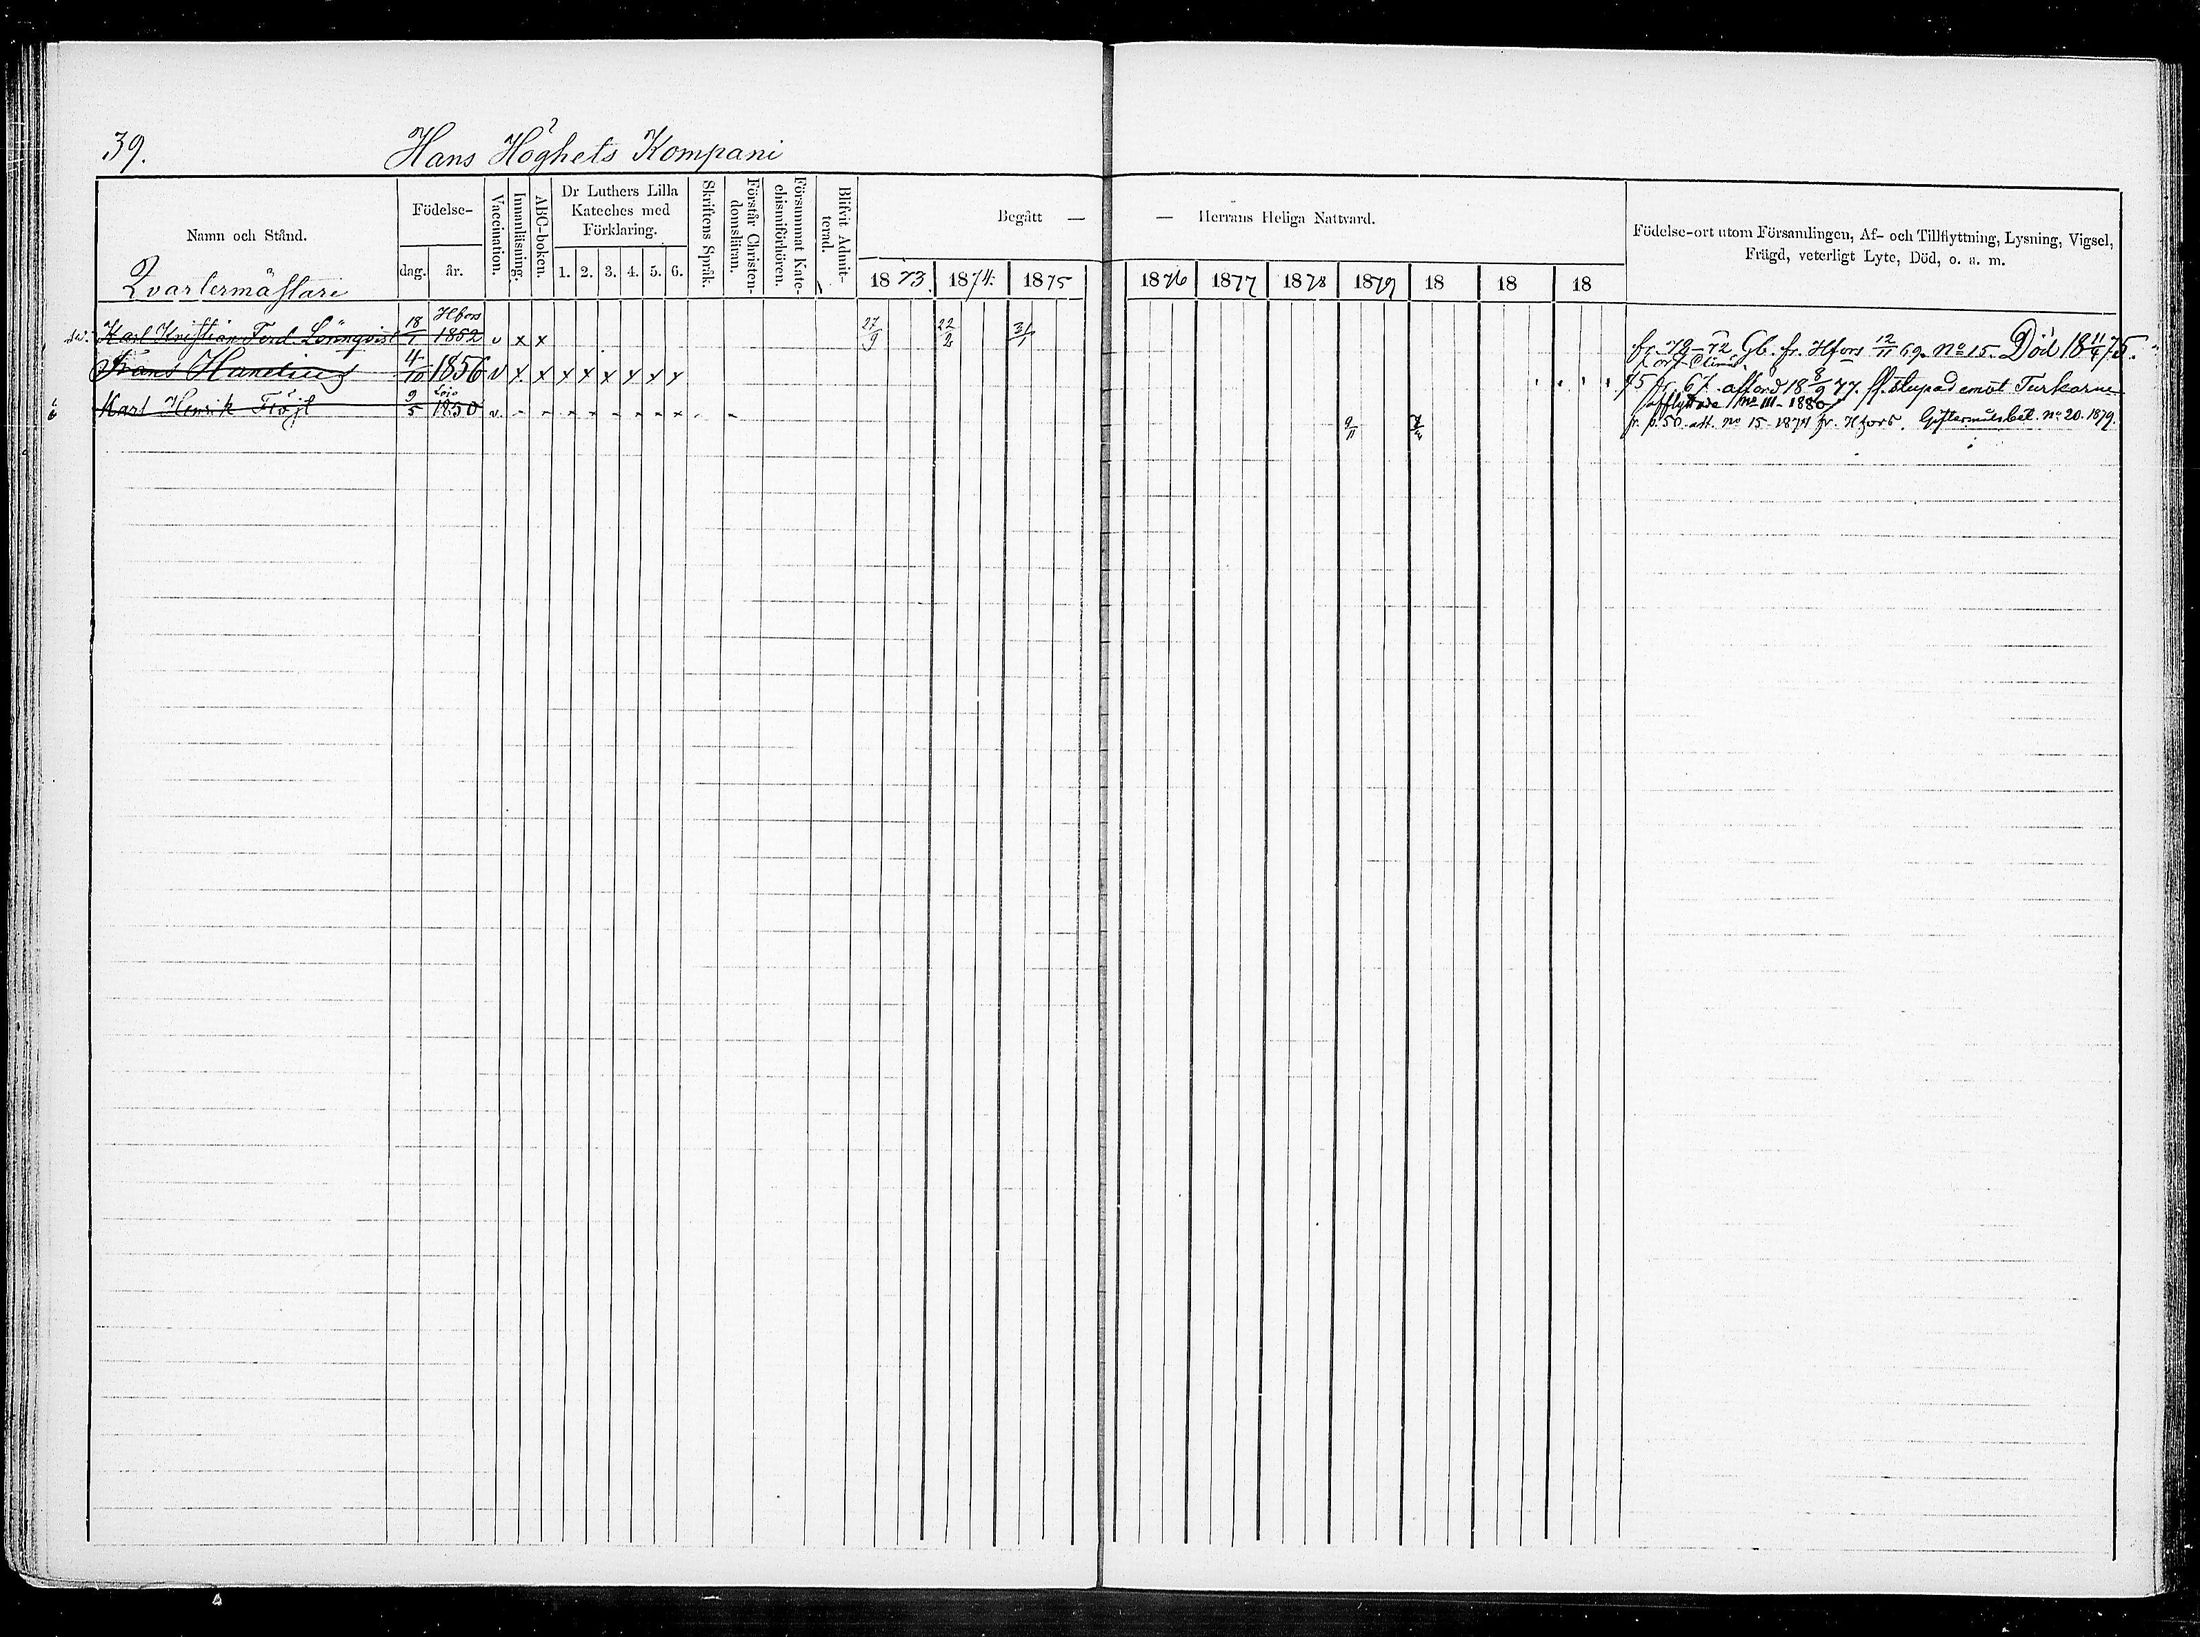 39.
Hans Höghets Kompani
Namn och Stånd.
Födelse-
dag.
år.
Vaccination.
Innanläsning.
ABC-boken.
Dr Luthers Lilla
Kateches med
Förklaring.
1. 2. 3. 4. 5. 6.
Skriftens Språk.
Förstår Christen-
domsläran.
Försummat Kate-
chismiförhören.
Blifvit Admit-
terad.
Begått —
— Herrans Heliga Nattvard.
1873. 1874. 1875 1876 1877 1878 1879 18 18 18
Födelse-ort utom Församlingen, Af- och Tillflyttning, Lysning, Vigsel,
Frägd, veterligt Lyte, Död, o. a. m.
Qvartermästare
Karl Kristian Ferd. Lönnqvist 18/1 Hfors 1852 v x x 27/9 22/2 31/1 72 Gb. fr. Hfors 12/11 69. No 15. Död 18 11/4 75.
Frans Hanelius 4/10 1856 v x x x x x x x x 75 fr. 67. afförd 18 8/9 77. stupad emot Turkarne
afflyttade No III-1880
Karl Henrik Fröjl 9/5 Lojo 1850 v 9/11 fr. p. 50. att. No 15-1874 fr. Hfors. Giftermålsbet. No. 20. 1879.